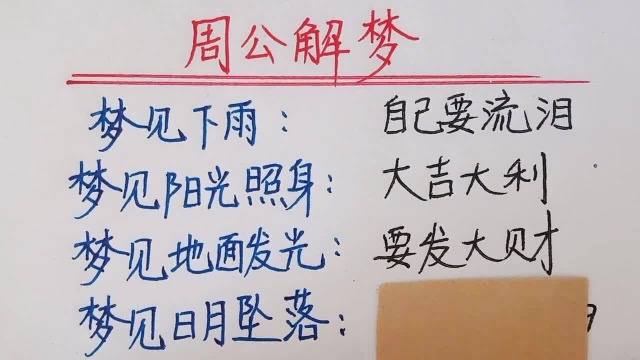 周公解梦
梦见下雨： 自己要流泪
梦见阳光照身： 大吉大利
梦见地面发光： 要发大财
梦见日月坠落：